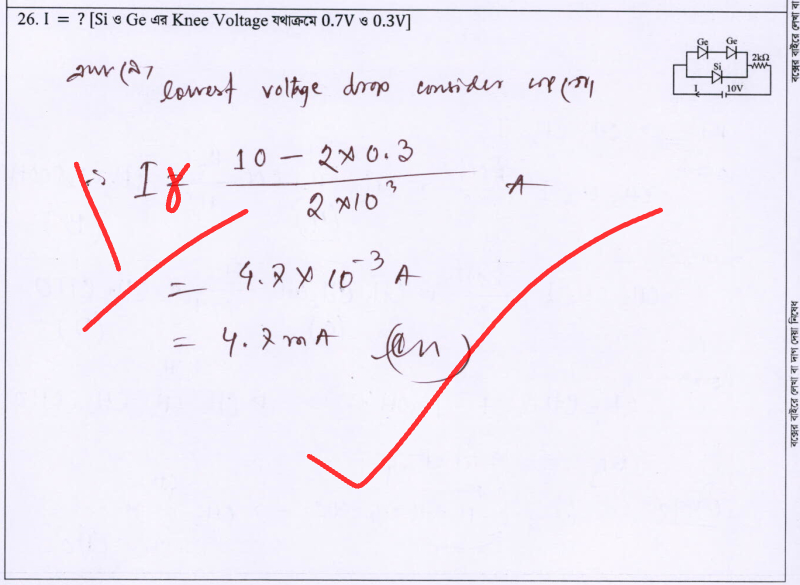 26. I = ? [Si ও Ge এর Knee Voltage যথাক্রমে 0.7V ও 0.3V]
Ge Ge
Si 2kΩ
I 10V
lowest voltage drop consider
I = 10 - 2×0.3 / 2×10³ A
= 4.7×10⁻³ A
= 4.7 mA
বক্সের বাইরে লেখা বা দাগ দেয়া নিষেধ
বক্সের বাইরে লেখা বা